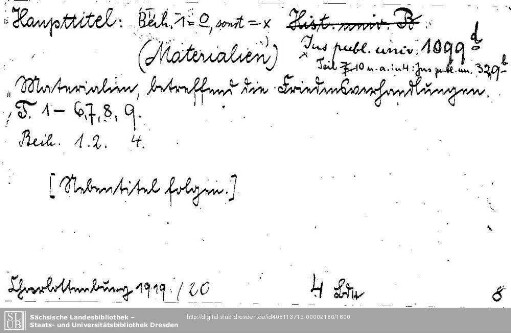 Haupttitel: Beih. 1 = O, sonst = x Hist. univ. B
(Materialien) x Jus publ. univ. 1099 d
Teil 7-10 u. a. in 4: Jus publ. un. 329 b
Materialien, betreffend die Friedensverhandlungen.
T. 1-6,7,8,9.
Beih. 1.2. 4.
[Nebentitel folgen.]
Charlottenburg 1919/20 4 Bde 8
SLUB Sächsische Landesbibliothek –
Staats- und Universitätsbibliothek Dresden